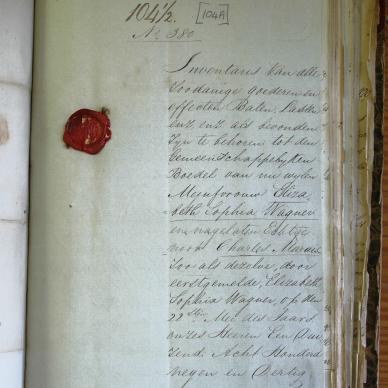 104½.
[104A]
No 380
Inventaris van alle
zoodanige goederen en
effecten Balen, Lasten
enz. enz. als bevonden
zyn te behooren tot den
Gemeenschappelyken
Boedel van nu wylen
Mejufvrouw Eliza
beth Sophia Wagner
en nagelaten Echtge
noot Charles Marais
Zoo als dezelve, door
eerstgemelde, Elizabeth
Sophia Wagner, op den
22sten Mei des Jaars
onzes Heeren Een Dui
zend Acht Honderd
negen en Dertig